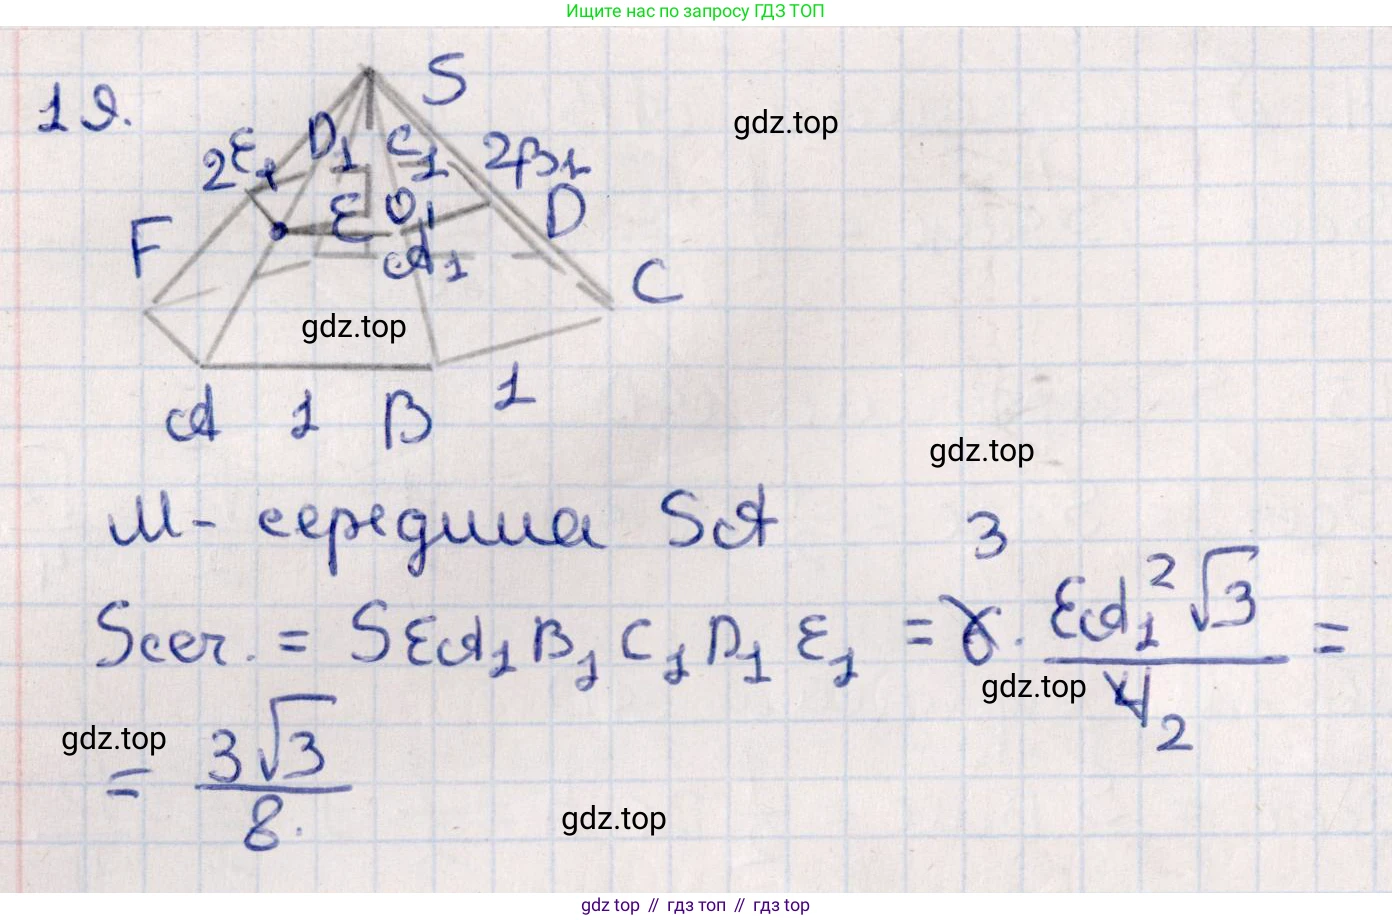 Ищите нас по запросу ГДЗ ТОП
19.
S
D₁ C₁
2 E₁ 2 B₁
gdz.top
F E O₁ D
A₁ C
gdz.top
A 1 B 1
gdz.top
M - середина SA
Sсеч. = SEA₁B₁C₁D₁E₁ = 6 3 · EA₁²√3 / 4 2 =
gdz.top
gdz.top
= 3√3 / 8.
gdz.top
gdz top // гдз топ // gdz top